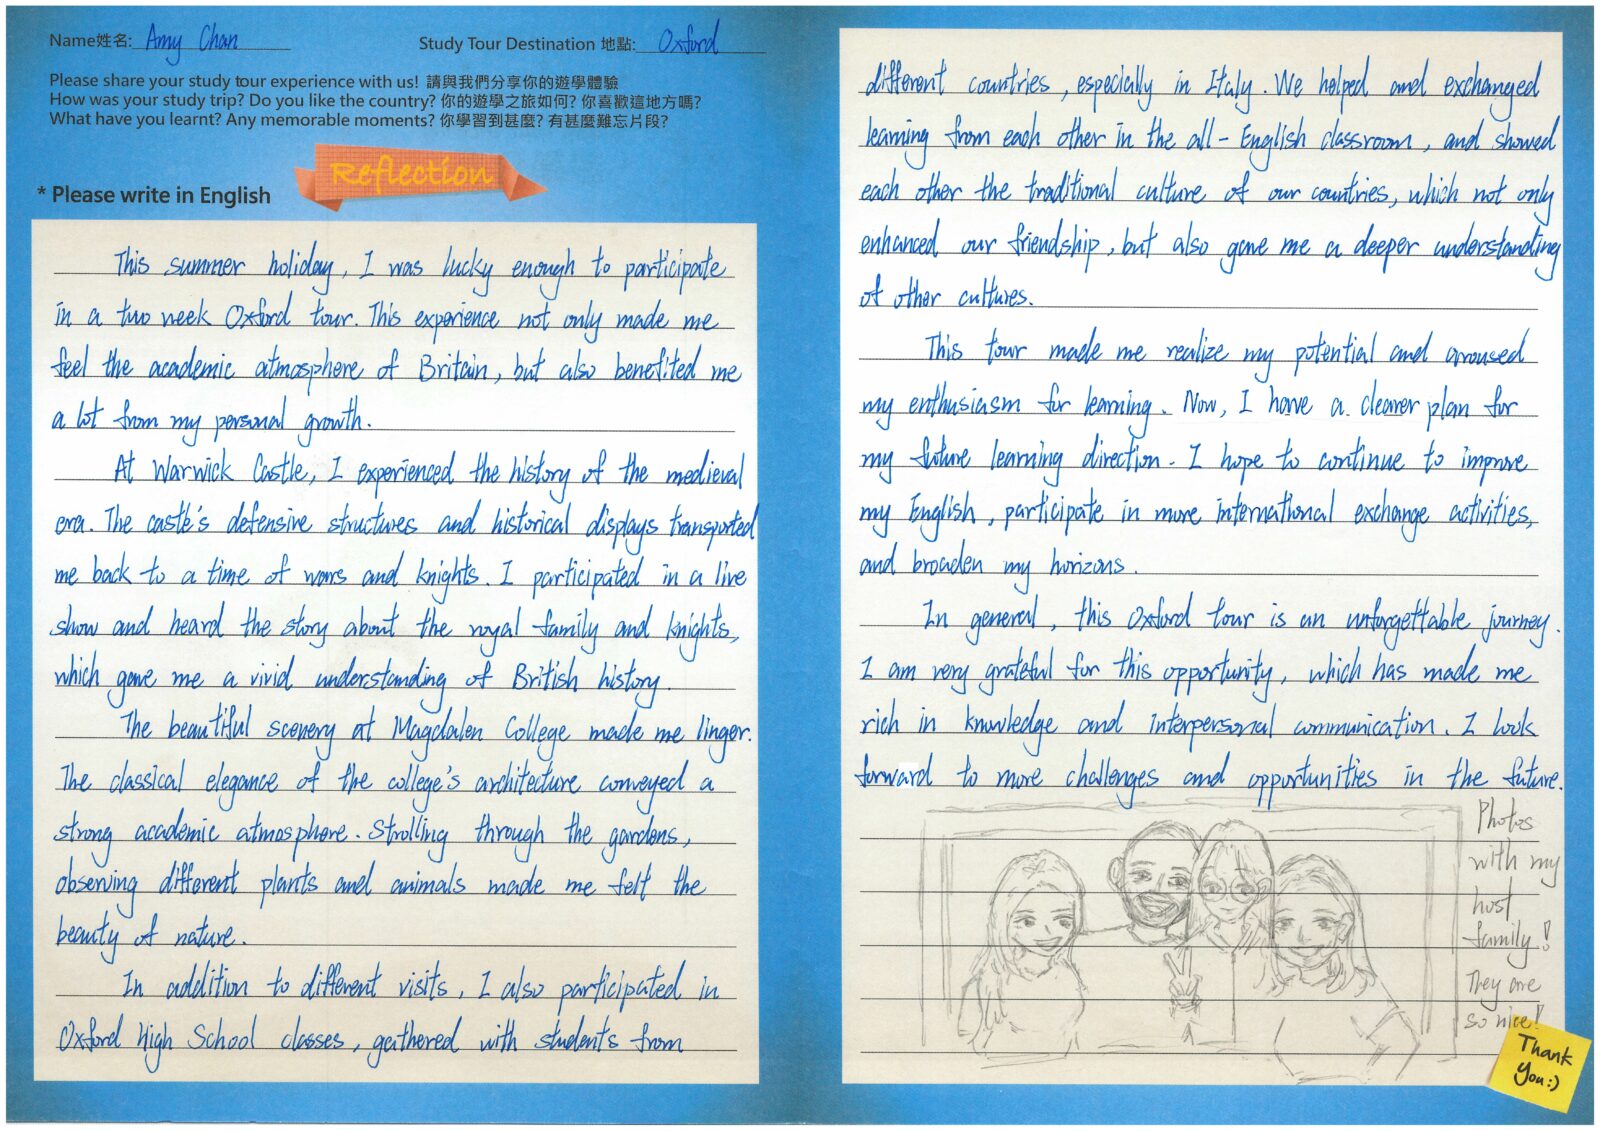 Name姓名: Amy Chan
Study Tour Destination 地點: Oxford
Please share your study tour experience with us! 請與我們分享你的遊學體驗
How was your study trip? Do you like the country? 你的遊學之旅如何? 你喜歡這地方嗎?
What have you learnt? Any memorable moments? 你學習到甚麼? 有甚麼難忘片段?
Reflection
* Please write in English
This summer holiday, I was lucky enough to participate
in a two week Oxford tour. This experience not only made me
feel the academic atmosphere of Britain, but also benefited me
a lot from my personal growth.
At Warwick Castle, I experienced the history of the medieval
era. The castle's defensive structures and historical displays transported
me back to a time of wars and knights. I participated in a live
show and heard the story about the royal family and knights,
which gave me a vivid understanding of British history.
The beautiful scenery at Magdalen College made me linger.
The classical elegance of the college's architecture conveyed a
strong academic atmosphere. Strolling through the gardens,
observing different plants and animals made me felt the
beauty of nature.
In addition to different visits, I also participated in
Oxford High School classes, gathered with students from
different countries, especially in Italy. We helped and exchanged
learning from each other in the all-English classroom, and showed
each other the traditional culture of our countries, which not only
enhanced our friendship, but also gave me a deeper understanding
of other cultures.
This tour made me realize my potential and aroused
my enthusiasm for learning. Now, I have a clearer plan for
my future learning direction. I hope to continue to improve
my English, participate in more international exchange activities,
and broaden my horizons.
In general, this Oxford tour is an unforgettable journey.
I am very grateful for this opportunity, which has made me
rich in knowledge and interpersonal communication. I look
forward to more challenges and opportunities in the future.
Photos
with my
host
family!
They are
so nice!
Thank
You:)